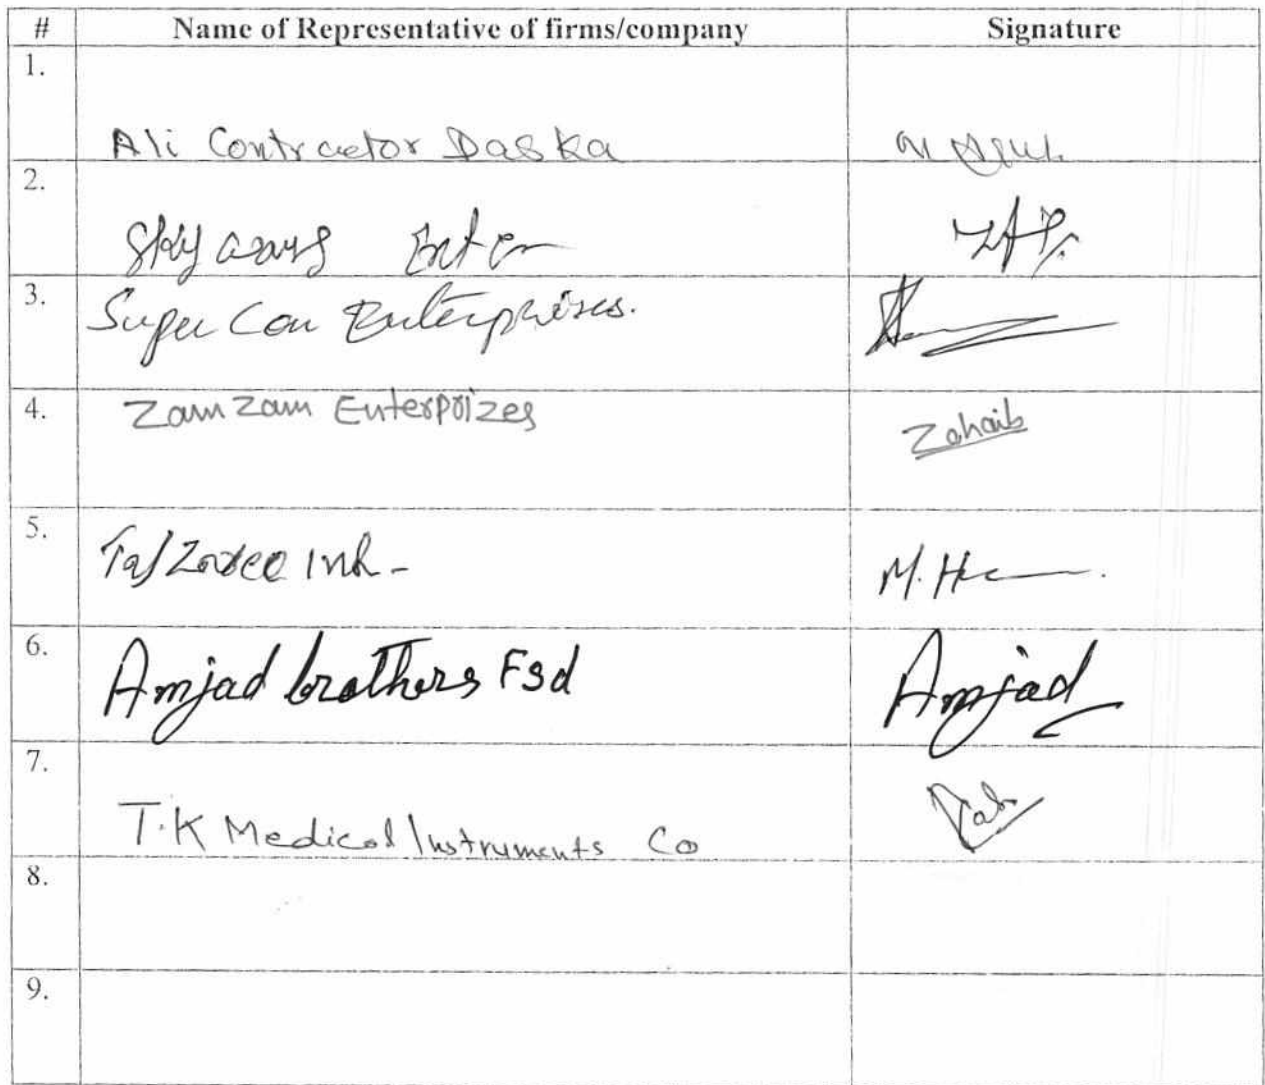 # Name of Representative of firms/company Signature
1. Ali Contractor Daska
2. Sky Enter
3. Super Con Enterprises.
4. Zam Zam Enterprizes Zohaib
5. M. H
6. Amjad brothers Fsd Amjad
7. T.K Medical Instruments Co
8.
9.